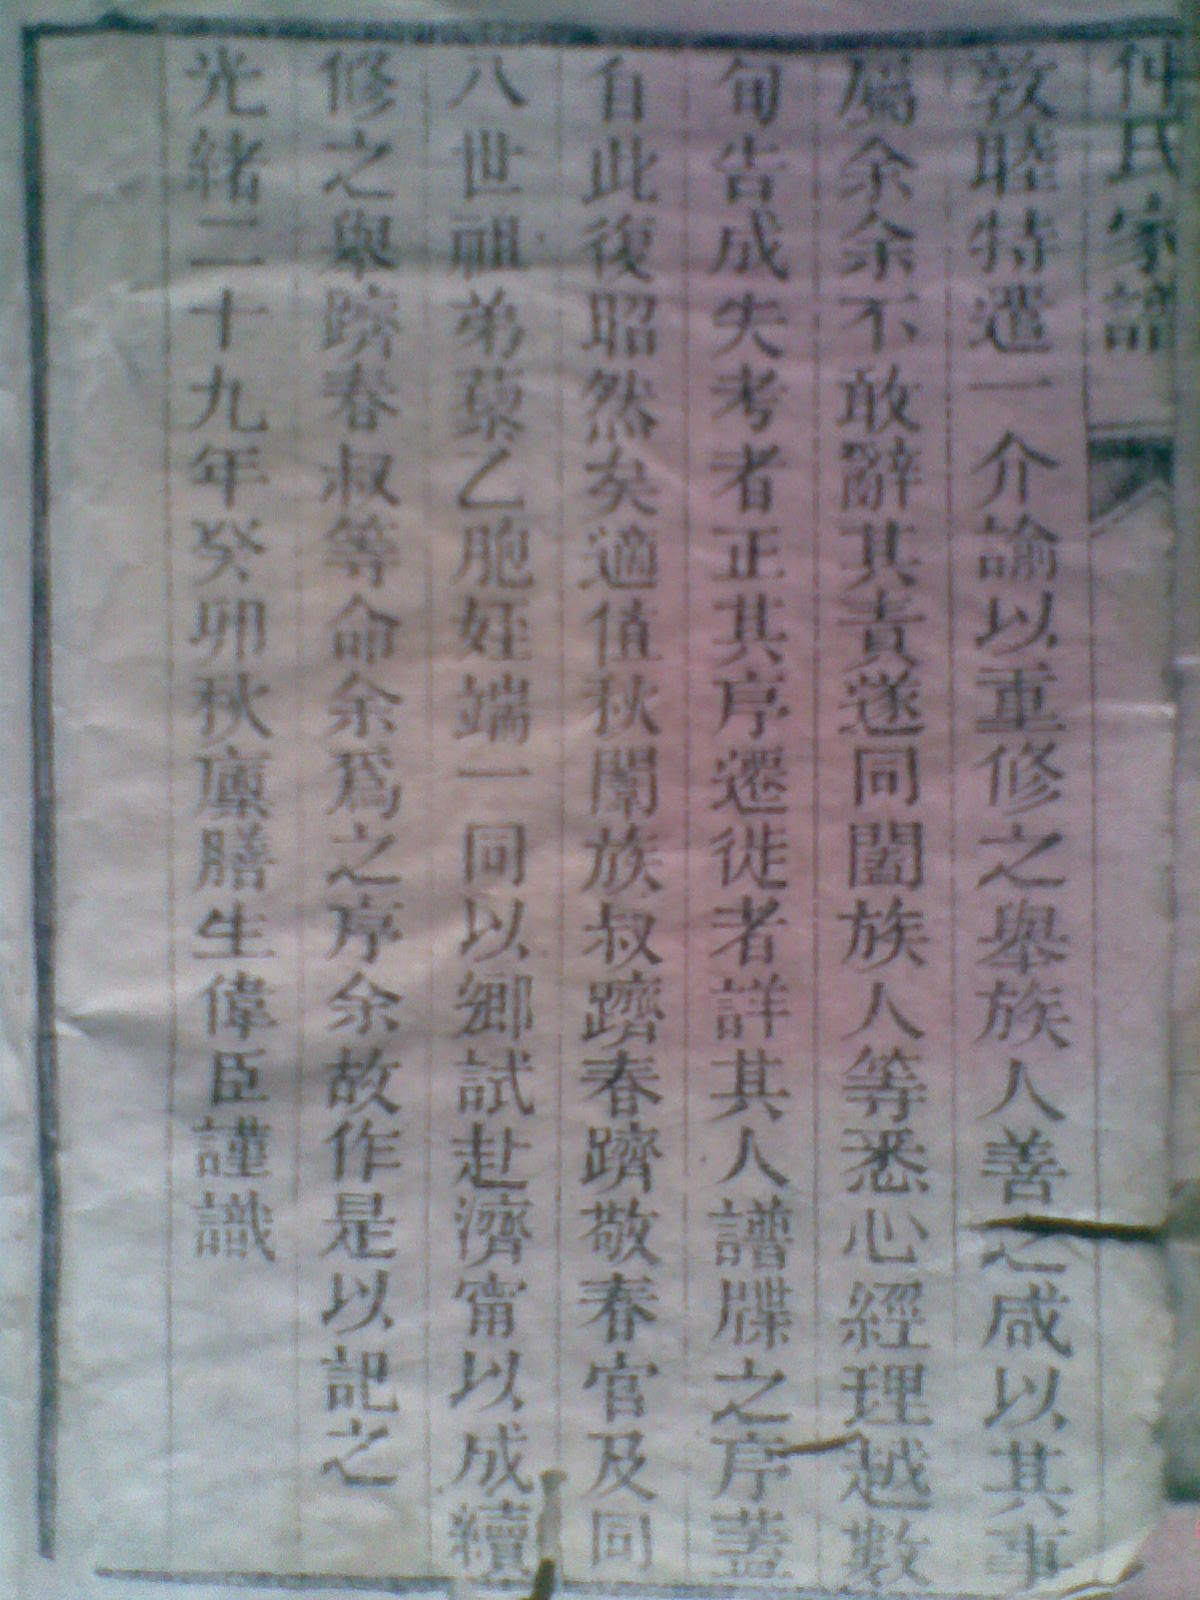 仲氏家譜
敦睦特遣一介諭以重修之舉族人善之咸以其事
屬余余不敢辭其責遂同闔族人等悉心經理越數
旬告成失考者正其序遷徙者詳其人譜牒之序蓋
自此復昭然矣適值秋闈族叔躋春躋敬春官及同
八世祖弟藜乙胞姪端一同以鄉試赴濟甯以成續
修之舉躋春叔等命余爲之序余故作是以記之
光緒二十九年癸卯秋廩膳生偉臣謹識